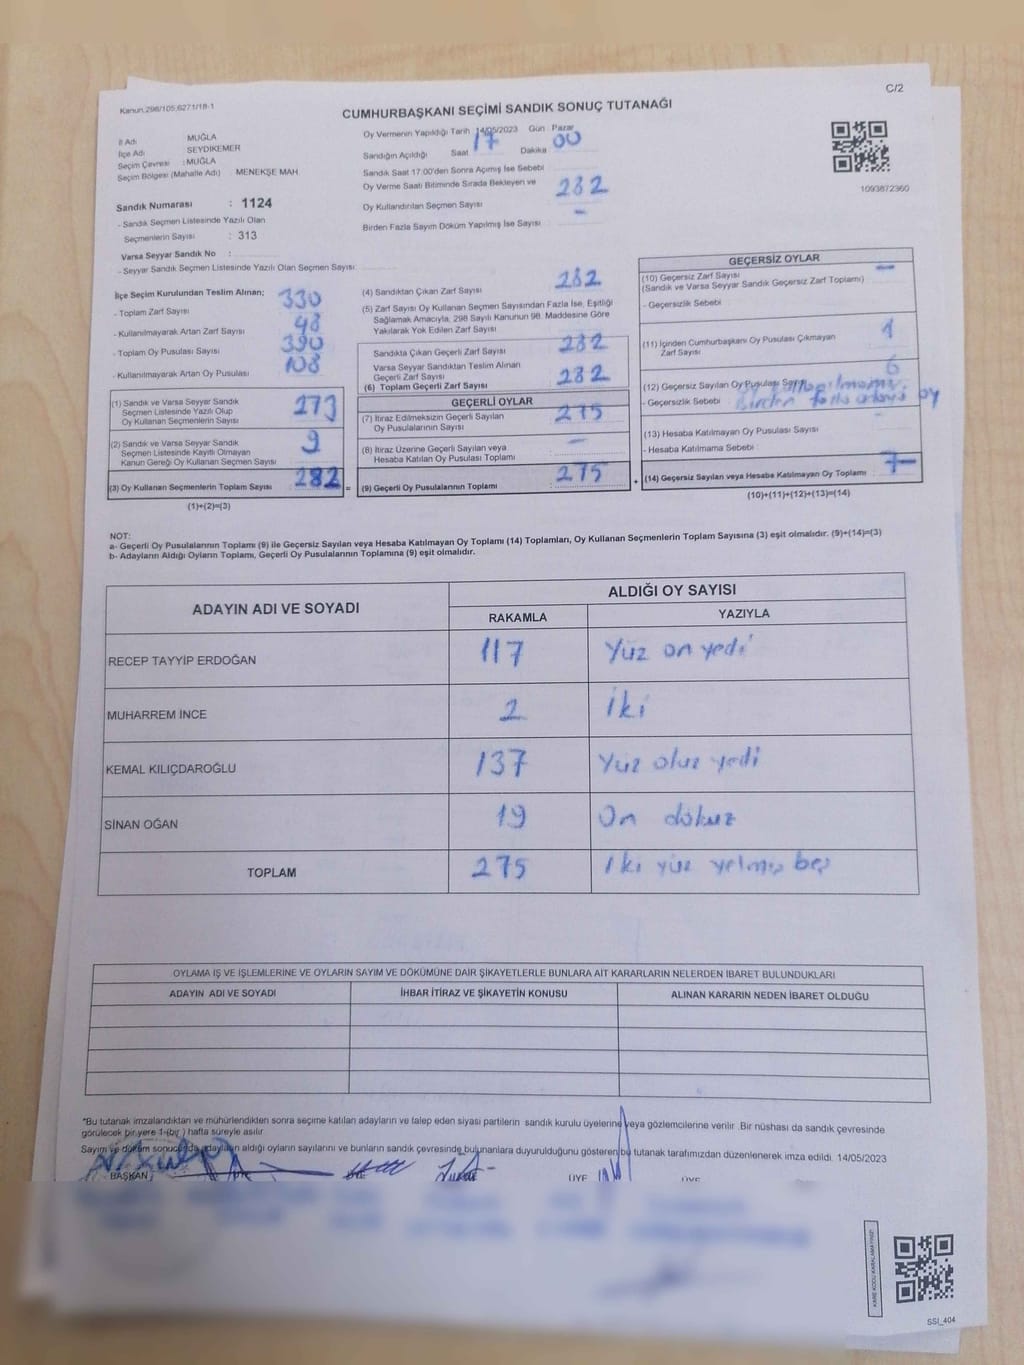 Kanun:298/105;6271/18-1
C/2
CUMHURBAŞKANI SEÇİMİ SANDIK SONUÇ TUTANAĞI
İl Adı : MUĞLA
İlçe Adı SEYDİKEMER
Seçim Çevresi : MUĞLA
Seçim Bölgesi (Mahalle Adı) : MENEKŞE MAH
Sandık Numarası : 1124
- Sandık Seçmen Listesinde Yazılı Olan
Seçmenlerin Sayısı : 313
Varsa Seyyar Sandık No :
- Seyyar Sandık Seçmen Listesinde Yazılı Olan Seçmen Sayısı:
Oy Vermenin Yapıldığı Tarih 14/05/2023 Gün : Pazar
Sandığın Açıldığı Saat 17 Dakika 00
Sandık Saat 17.00'den Sonra Açılmış İse Sebebi
Oy Verme Saati Bitiminde Sırada Bekleyen ve
Oy Kullandırılan Seçmen Sayısı 282
Birden Fazla Sayım Döküm Yapılmış İse Sayısı -
1093872360
İlçe Seçim Kurulundan Teslim Alınan;
- Toplam Zarf Sayısı : 330
- Kullanılmayarak Artan Zarf Sayısı : 48
- Toplam Oy Pusulası Sayısı : 390
- Kullanılmayarak Artan Oy Pusulası : 108
(1) Sandık ve Varsa Seyyar Sandık
Seçmen Listesinde Yazılı Olup
Oy Kullanan Seçmenlerin Sayısı 273
(2) Sandık ve Varsa Seyyar Sandık
Seçmen Listesinde Kayıtlı Olmayan
Kanun Gereği Oy Kullanan Seçmen Sayısı 9
(3) Oy Kullanan Seçmenlerin Toplam Sayısı : 282
(1)+(2)=(3)
(4) Sandıktan Çıkan Zarf Sayısı 282
(5) Zarf Sayısı Oy Kullanan Seçmen Sayısından Fazla İse, Eşitliği
Sağlamak Amacıyla, 298 Sayılı Kanunun 98. Maddesine Göre
Yakılarak Yok Edilen Zarf Sayısı
Sandıkta Çıkan Geçerli Zarf Sayısı : 282
Varsa Seyyar Sandıktan Teslim Alınan
Geçerli Zarf Sayısı
(6) Toplam Geçerli Zarf Sayısı : 282
GEÇERLİ OYLAR
(7) İtiraz Edilmeksizin Geçerli Sayılan
Oy Pusulalarının Sayısı 275
(8) İtiraz Üzerine Geçerli Sayılan veya
Hesaba Katılan Oy Pusulası Toplamı -
(9) Geçerli Oy Pusulalarının Toplamı : 275
GEÇERSİZ OYLAR
(10) Geçersiz Zarf Sayısı -
(Sandık ve Varsa Seyyar Sandık Geçersiz Zarf Toplamı)
- Geçersizlik Sebebi
(11) İçinden Cumhurbaşkanı Oy Pusulası Çıkmayan
Zarf Sayısı 1
(12) Geçersiz Sayılan Oy Pusulası Sayısı 6
- Geçersizlik Sebebi Birden fazla oy
(13) Hesaba Katılmayan Oy Pusulası Sayısı :
- Hesaba Katılmama Sebebi :
(14) Geçersiz Sayılan veya Hesaba Katılmayan Oy Toplamı : 7-
(10)+(11)+(12)+(13)=(14)
NOT:
a- Geçerli Oy Pusulalarının Toplamı (9) ile Geçersiz Sayılan veya Hesaba Katılmayan Oy Toplamı (14) Toplamları, Oy Kullanan Seçmenlerin Toplam Sayısına (3) eşit olmalıdır. (9)+(14)=(3)
b- Adayların Aldığı Oyların Toplamı, Geçerli Oy Pusulalarının Toplamına (9) eşit olmalıdır.
ADAYIN ADI VE SOYADI
ALDIĞI OY SAYISI
RAKAMLA YAZIYLA
RECEP TAYYİP ERDOĞAN 117 Yüz on yedi
MUHARREM İNCE 2 İki
KEMAL KILIÇDAROĞLU 137 Yüz otuz yedi
SİNAN OĞAN 19 On dokuz
TOPLAM 275 İki yüz yetmiş beş
OYLAMA İŞ VE İŞLEMLERİNE VE OYLARIN SAYIM VE DÖKÜMÜNE DAİR ŞİKAYETLERLE BUNLARA AİT KARARLARIN NELERDEN İBARET BULUNDUKLARI
ADAYIN ADI VE SOYADI İHBAR İTİRAZ VE ŞİKAYETİN KONUSU ALINAN KARARIN NEDEN İBARET OLDUĞU
*Bu tutanak imzalandıktan ve mühürlendikten sonra seçime katılan adayların ve talep eden siyasi partilerin sandık kurulu üyelerine veya gözlemcilerine verilir. Bir nüshası da sandık çevresinde
görülecek bir yere 1-(bir ) hafta süreyle asılır.
Sayım ve döküm sonucunda adayların aldığı oyların sayılarını ve bunların sandık çevresinde bulunanlara duyurulduğunu gösteren bu tutanak tarafımızdan düzenlenerek imza edildi. 14/05/2023
BAŞKAN ÜYE ÜYE
KARE KODU KARALAMAYINIZ!
SSI_404